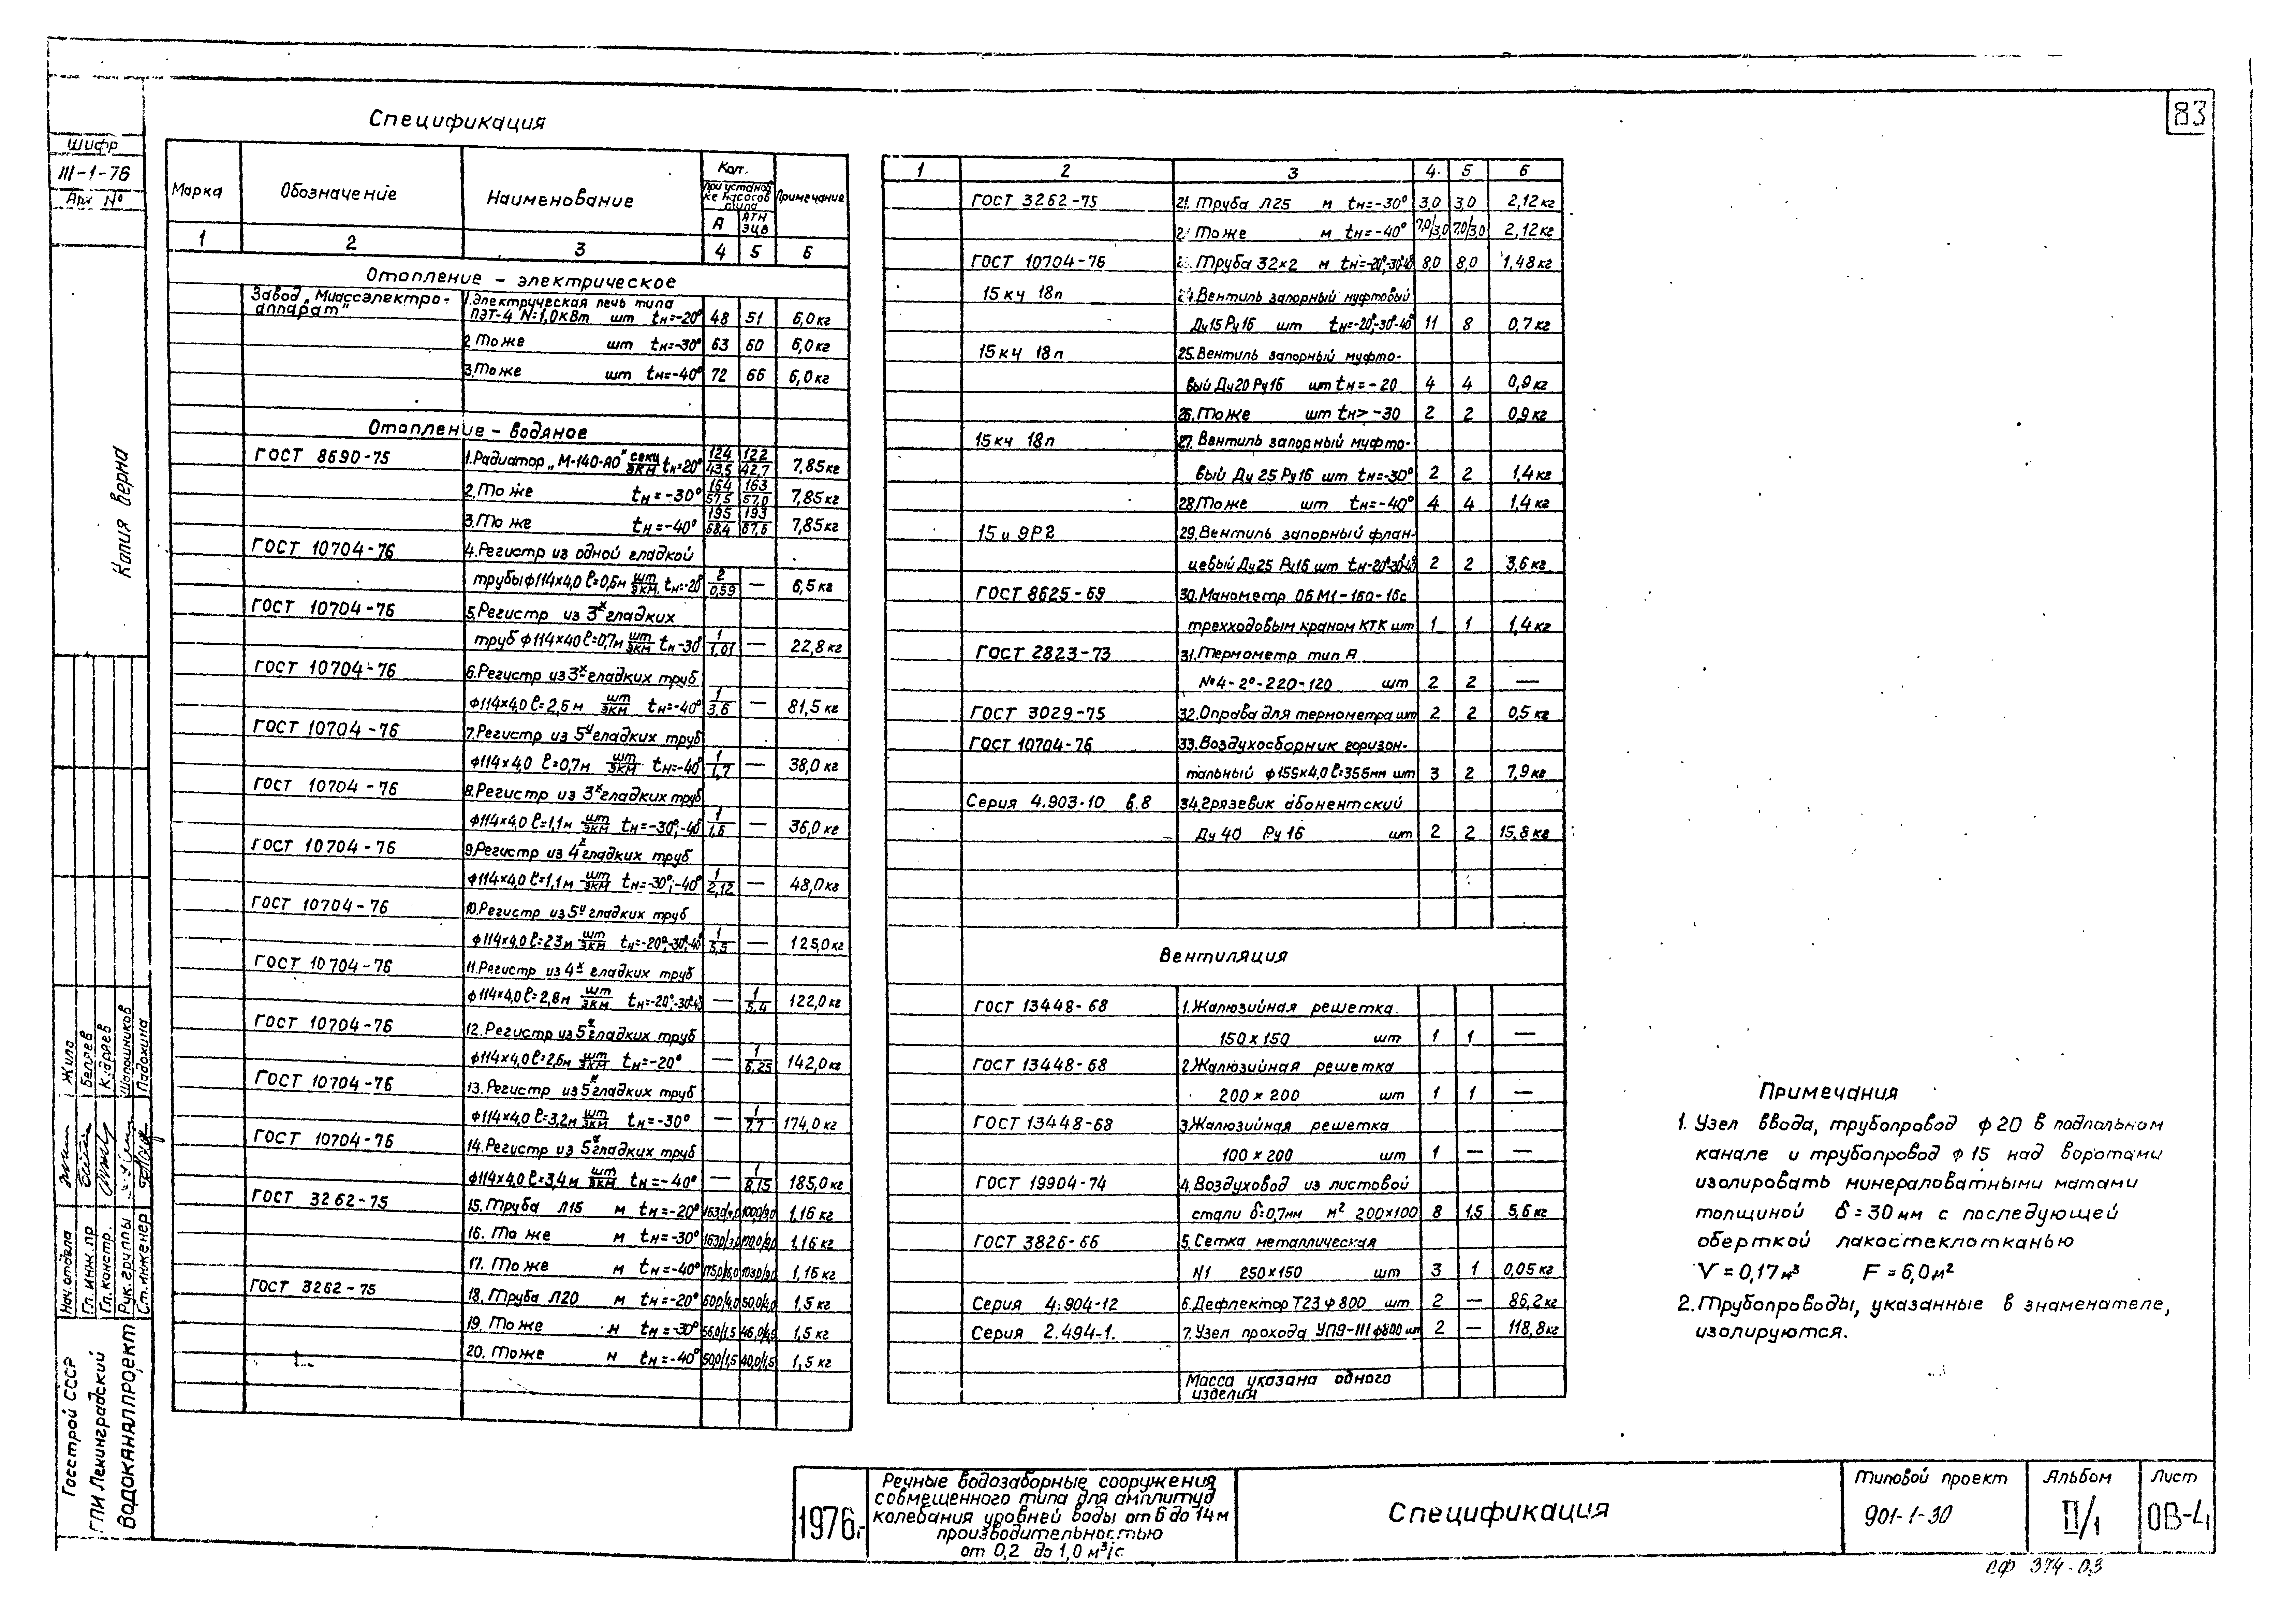 83
Спецификация
Шифр
III-1-76
Арх №
Копия верна
Марка
Обозначение
Наименование
Кол.
при установ
ке насосов
типа
А
АТН
ЭЦВ
Примечание
1 2 3 4 5 6
Отопление - электрическое
Завод „Миассэлектро-
аппарат"
1.Электрическая печь типа
ПЭТ-4 N=1,0кВт шт tн=-20° 48 51 6,0кг
2.То же шт tн=-30° 63 60 6,0кг
3.То же шт tн=-40° 72 66 6,0кг
Отопление - водяное
ГОСТ 8690-75 1.Радиатор „М-140-АО" секц/экм tн=-20° 124/43,5 122/42,7 7,85кг
2.То же tн=-30° 164/57,5 163/57,0 7,85кг
3.То же tн=-40° 195/68,4 193/67,6 7,85кг
ГОСТ 10704-76 4.Регистр из одной гладкой
трубы ф114×4,0 ℓ=0,6м шт/экм. tн=-20° 2/0,59 — 6,5кг
ГОСТ 10704-76 5.Регистр из 3х гладких
труб ф114×40 ℓ=0,7м шт/экм tн-30° 1/1,01 — 22,8кг
ГОСТ 10704-76 6.Регистр из 3х гладких труб
ф114×4,0 ℓ=2,6м шт/экм tн=-40° 1/3,6 — 81,5кг
ГОСТ 10704-76 7.Регистр из 5и гладких труб
ф114×4,0 ℓ=0,7м шт/экм tн=-40° 1/1,7 — 38,0кг
ГОСТ 10704-76 8.Регистр из 3х гладких труб
ф114×4,0 ℓ=1,1м шт/экм tн=-30°,-40° 1/1,6 — 36,0кг
ГОСТ 10704-76 9.Регистр из 4х гладких труб
ф114×4,0 ℓ=1,1м шт/экм tн=-30°;-40° 1/2,12 — 48,0кг
ГОСТ 10704-76 10.Регистр из 5и гладких труб
ф114×4,0 ℓ=2,3м шт/экм tн=-20°-30°-40° 1/5,5 — 125,0кг
ГОСТ 10704-76 11.Регистр из 4х гладких труб
ф114×4,0 ℓ=2,8м шт/экм tн=-20°-30°-40° — 1/5,4 122,0кг
ГОСТ 10704-76 12.Регистр из 5и гладких труб
ф114×4,0 ℓ=2,6м шт/экм tн=-20° — 1/6,25 142,0кг
ГОСТ 10704-76 13.Регистр из 5и гладких труб
ф114×4,0 ℓ=3,2м шт/экм tн=-30° — 1/7,7 174,0кг
ГОСТ 10704-76 14.Регистр из 5и гладких труб
ф114×4,0 ℓ=3,4м шт/экм tн=-40° — 1/8,15 185,0кг
ГОСТ 3262-75 15.Труба Л15 м tн=-20° 1,16кг
16. То же м tн=-30° 1,16кг
17. То же м tн=-40° 1,16кг
ГОСТ 3262-75 18.Труба Л20 м tн=-20° 60,0/4,0 50,0/4,0 1,5кг
19. То же м tн=-30° 1,5кг
20. То же м tн=-40° 50,0/1,5 40,0/1,5 1,5кг
1 2 3 4. 5 6
ГОСТ 3262-75 21. Труба Л25 м tн=-30° 3,0 3,0 2,12кг
То же м tн=-40° 7,0/3,0 7,0/3,0 2,12кг
ГОСТ 10704-76 Труба 32×2 м tн=-20°-30°-40° 8,0 8,0 1,48кг
15 кч 18п 24.Вентиль запорный муфтовый
Ду15 Ру16 шт tн=-20°-30°-40° 11 8 0,7кг
15 кч 18п 25.Вентиль запорный муфто-
вый Ду20 Ру16 шт tн=-20 4 4 0,9кг
26.То же шт tн>-30 2 2 0,9кг
15 кч 18п 27.Вентиль запорный муфто-
вый Ду 25 Ру16 шт tн=-30° 2 2 1,4кг
28.То же шт tн=-40° 4 4 1,4кг
15 ч 9Р2 29.Вентиль запорный флан-
цевый Ду25 Ру16 шт tн-20°-30°-40° 2 2 3,6кг
ГОСТ 8625-69 30.Манометр ОБМ1-160-16с
трехходовым краном КТК шт 1 1 1,4кг
ГОСТ 2823-73 31.Термометр тип А
№4-2°-220-120 шт 2 2 —
ГОСТ 3029-75 32.Оправа для термометра шт 2 2 0,5кг
ГОСТ 10704-76 33.Воздухосборник горизон-
тальный ф159×4,0 ℓ=356мм шт 3 2 7,9кг
Серия 4.903-10 в.8 34.Грязевик абонентский
Ду 40 Ру 16 шт 2 2 15,8кг
Вентиляция
ГОСТ 13448-68 1.Жалюзийная решетка
150×150 шт 1 1 —
ГОСТ 13448-68 2.Жалюзийная решетка
200×200 шт 1 1 —
ГОСТ 13448-68 3.Жалюзийная решетка
100×200 шт 1 — —
ГОСТ 19904-74 4.Воздуховод из листовой
стали δ=0,7мм м² 200×100 8 1,5 5,6кг
ГОСТ 3826-66 5.Сетка металлическая
N1 250×150 шт 3 1 0,05кг
Серия 4.904-12 6.Дефлектор Т23 ф800 шт 2 — 86,2кг
Серия 2.494-1. 7.Узел прохода УП9-III ф800 шт 2 — 118,8кг
Масса указана одного
изделия
Примечания
1. Узел ввода, трубопровод ф20 в подпольном
канале и трубопровод ф15 над воротами
изолировать минераловатными матами
толщиной δ=30мм с последующей
оберткой лакостеклотканью
V=0,17м³ F=6,0м²
2.Трубопроводы, указанные в знаменателе,
изолируются.
Нач.отдела Жило
Гл.инж.пр Беляев
Гл.констр.
Рук.группы Шапошников
Ст.инженер Ладокина
Госстрой СССР
ГПИ Ленинградский
ВОДОКАНАЛПРОЕКТ
1976г
Речные водозаборные сооружения
совмещенного типа для амплитуд
колебания уровней воды от 6 до 14м
производительностью
от 0,2 до 1,0 м³/с
Спецификация
Типовой проект
901-1-30
Альбом
II/1
Лист
ОВ-4
СФ 374-03